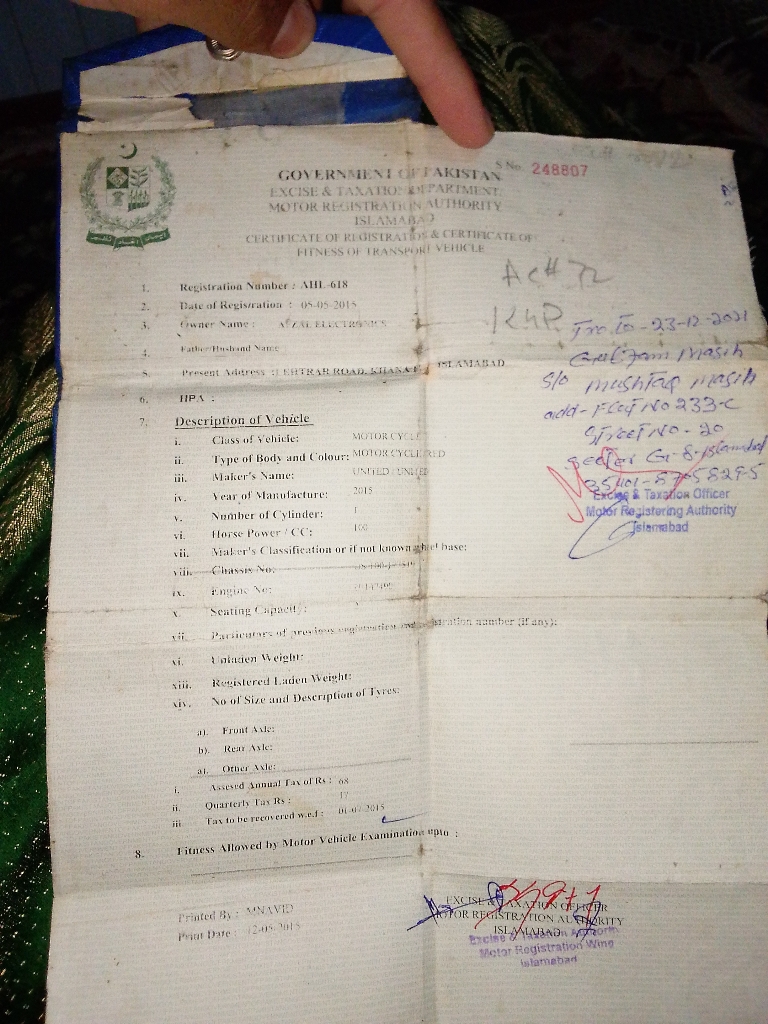 S No. 248807
GOVERNMENT OF PAKISTAN
EXCISE & TAXATION DEPARTMENT
MOTOR REGISTRATION AUTHORITY
ISLAMABAD
CERTIFICATE OF REGISTRATION & CERTIFICATE OF
FITNESS OF TRANSPORT VEHICLE
1. Registration Number : AHL-618
2. Date of Registration : 05-05-2015
3. Owner Name : AFZAL ELECTRONICS
4. Father/Husband Name
5. Present Address : LEHTRAR ROAD, ISLAMABAD
6. HPA :
7. Description of Vehicle
i. Class of Vehicle: MOTOR CYCLE
ii. Type of Body and Colour: MOTOR CYCLE RED
iii. Maker's Name: UNITED / UNITED
iv. Year of Manufacture: 2015
v. Number of Cylinder: 1
vi. Horse Power / CC: 100
vii. Maker's Classification or if not known wheel base:
viii. Chassis No:
ix. Engine No:
x. Seating Capacity: 2
vii. Particulars of previous registration and registration number (if any):
xi. Unladen Weight:
xiii. Registered Laden Weight:
xiv. No of Size and Description of Tyres:
a). Front Axle:
b). Rear Axle:
a). Other Axle:
i. Assesed Annual Tax of Rs : 68
ii. Quarterly Tax Rs : 17
iii Tax to be recovered w.e.f : 01-07-2015
8. Fitness Allowed by Motor Vehicle Examination upto :
Printed By : MNAVID
Print Date : 12-05-2015
EXCISE & TAXATION OFFICER
MOTOR REGISTRATION AUTHORITY
ISLAMABAD
Excise & Taxation Authority
Motor Registration Wing
Islamabad
Ac# 72
Tro To - 23-12-2021
Gulfam Masih
S/o mushtaq masih
add- Flat No 233-C
Street No - 20
sector G-8- Islamabad
Excise & Taxation Officer
Motor Registering Authority
Islamabad